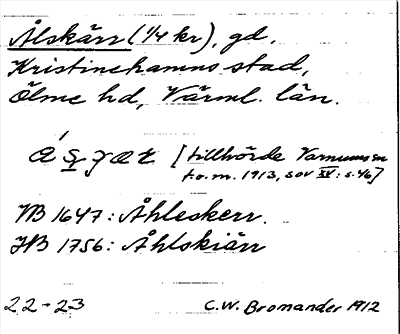 Ålskärr (1/4 kr), gd,
Kristinehamns stad,
Ölme hd, Värml. län.
[tillhörde Varnums sn
t.o.m. 1913, SOV XV: s. 46]
JB 1647: Åhleskerr.
JB 1756: Åhlskiärr
22-23 C.W. Bromander 1912